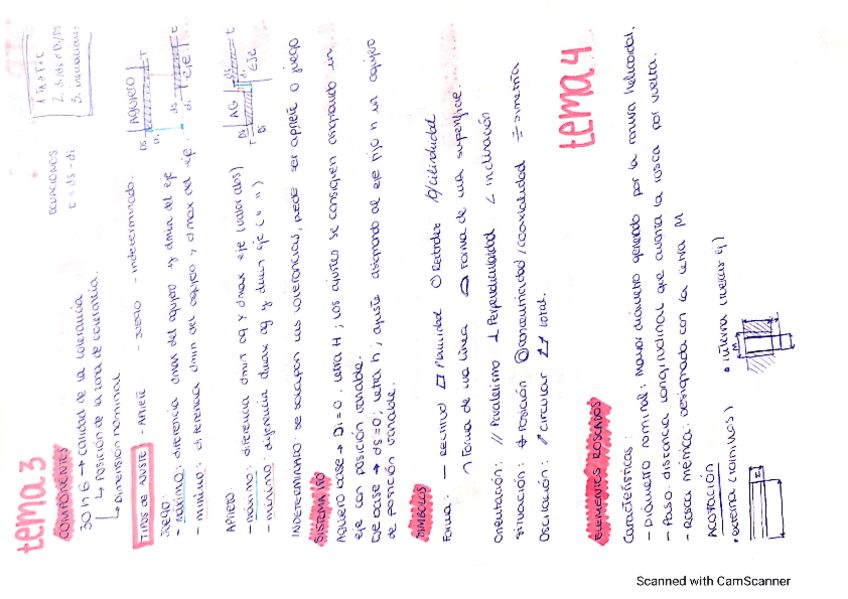 tema 3
COMPONENTES
30 H 6 → calidad de la tolerancia
↳ posición de la zona de tolerancia.
↳ Dimensión nominal
ECUACIONES
t = ds - di
TIPOS DE AJUSTE - APRIETE - JUEGO - Indeterminado.
JUEGO:
- máximo: diferencia dmax del agujero y dmin del eje
- mínimo: diferencia dmin del agujero y dmax del eje.
AGUJERO
EJE
APRIETE:
- máximo: diferencia dmin ag y dmax eje (valor abs)
- mínimo: diferencia dmax ag y dmin eje (" ")
AG
EJE
INDETERMINADO: se solapan las tolerancias, puede ser apriete o juego
SISTEMA ISO
Agujero base → Di = 0, letra H; los ajustes se consiguen
eje con posición variable.
Eje base → ds = 0; letra h; ajuste al eje fijo h un agujero
de posición variable.
SÍMBOLOS
Forma: — Rectitud ▱ Planicidad ○ Redondez /○/ cilindricidad
⌒ Forma de una línea ⌓ Forma de una superficie.
Orientación: // Paralelismo ⊥ Perpendicularidad ∠ inclinación
Situación: ⌖ Posición ◎ concentricidad/coaxialidad ⌯ simetría
Oscilación: ↗ circular ⌰ total.
tema 4
ELEMENTOS ROSCADOS
Características:
- Diámetro nominal: mayor diámetro generado por la ranura helicoidal.
- Paso: distancia longitudinal que avanza la rosca por vuelta.
- rosca métrica: designada con la letra M
ACOTACIÓN
• externa (tornillos) • interna (tuercas)
M
Scanned with CamScanner